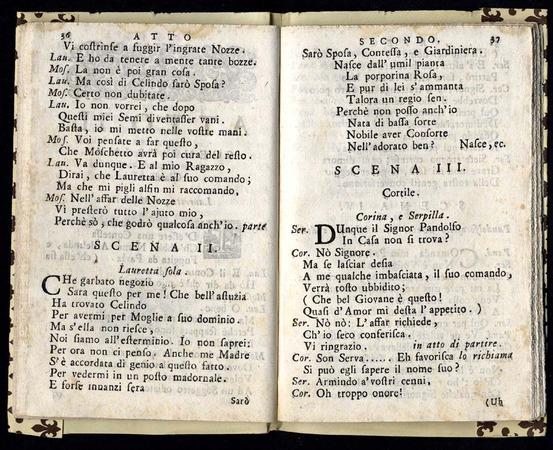 36 ATTO
Vi costrinse a fuggir l'ingrate Nozze.
Lau. E ho da tenere a mente tante bozze.
Mos. La non è poi gran cosa.
Lau. Ma così di Celindo sarò Sposa?
Mos. Certo non dubitate.
Lau. Io non vorrei, che dopo
Questi miei Semi diventasser vani.
Basta, io mi metto nelle vostre mani.
Mos. Voi pensate a far questo,
Che Moschetto avrà poi cura del resto.
Lau. Va dunque. E al mio Ragazzo,
Dirai, che Lauretta è al suo comando;
Ma che mi pigli alfin mi raccomando,
Mos. Nell'affar delle Nozze
Vi presterò tutto l'ajuto mio,
Perchè sò, che godrò qualcosa anch'io. parte
SCENA II.
Lauretta sola.
CHe garbato negozio
Sarà questo per me! Che bell'astuzia
Ha trovato Celindo
Per avermi per Moglie a suo dominio.
Ma s'ella non riesce,
Noi siamo all'esterminio. Io non saprei:
Per ora non ci penso. Anche me Madre
S'è accordata di genio a questo fatto.
Per vedermi in un posto madornale.
E forse innanzi sera
Sarò
SECONDO. 37
Sarò Sposa, Contessa, e Giardiniera.
Nasce dall'umil pianta
La porporina Rosa,
E pur di lei s'ammanta
Talora un regio sen.
Perchè non posso anch'io
Nata di bassa sorte
Nobile aver Consorte
Nell'adorato ben? Nasce, ec.
SCENA III.
Cortile.
Corina, e Serpilla.
Ser. DUnque il Signor Pandolfo
In Casa non si trova?
Cor. Nò Signore.
Ma se lasciar desia
A me qualche imbasciata, il suo comando,
Verrà tosto ubbidito;
( Che bel Giovane è questo!
Quasi d'Amor mi desta l'appetito. )
Ser. Nò nò: L'affar richiede,
Ch'io seco conferisca.
Vi ringrazio. in atto di partire.
Cor. Son Serva...... Eh favorisca lo richiama
Si può egli sapere il nome suo?
Ser. Armindo a'vostri cenni,
Cor. Oh troppo onore!
(Uh